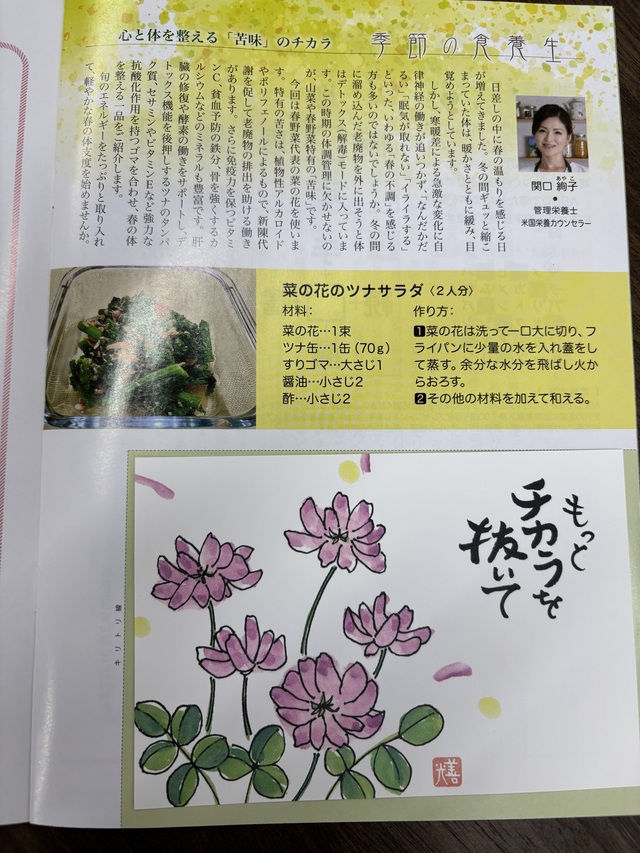 季節の食養生
心と体を整える「苦味」のチカラ
関口 絢子
あやこ
●
管理栄養士
米国栄養カウンセラー
日差しの中に春の温もりを感じる日
が増えてきました。冬の間ギュッと縮こ
まっていた体は、暖かさとともに緩み、目
覚めようとしています。
しかし、寒暖差による急激な変化に自
律神経の働きが追いつかず、「なんだかだ
るい」「眠気が取れない」「イライラする」
といった、いわゆる「春の不調」を感じる
方も多いのではないでしょうか。冬の間
に溜め込んだ老廃物を外に出そうと体
はデトックス(解毒)モードに入っていま
す。この時期の体調管理に欠かせないの
が、山菜や春野菜特有の「苦味」です。
今回は春野菜代表の菜の花を使いま
す。特有の苦さは、植物性アルカロイド
やポリフェノールによるもので、新陳代
謝を促して老廃物の排出を助ける働き
があります。さらに免疫力を保つビタミ
ンC、貧血予防の鉄分、骨を強くするカ
ルシウムなどのミネラルも豊富です。肝
臓の修復や酵素の働きをサポートし、デ
トックス機能を後押しするツナのタンパ
ク質、セサミンやビタミンEなど強力な
抗酸化作用を持つゴマを合わせ、春の体
を整える一品をご紹介します。
旬のエネルギーをたっぷりと取り入れ
て、軽やかな春の体支度を始めませんか。
菜の花のツナサラダ〈2人分〉
材料:
菜の花…1束
ツナ缶…1缶(70g)
すりゴマ…大さじ1
醤油…小さじ2
酢…小さじ2
作り方:
1菜の花は洗って一口大に切り、フ
ライパンに少量の水を入れ蓋をし
て蒸す。余分な水分を飛ばし火か
らおろす。
2その他の材料を加えて和える。
もっと
チカラを
抜いて
キリトリ線